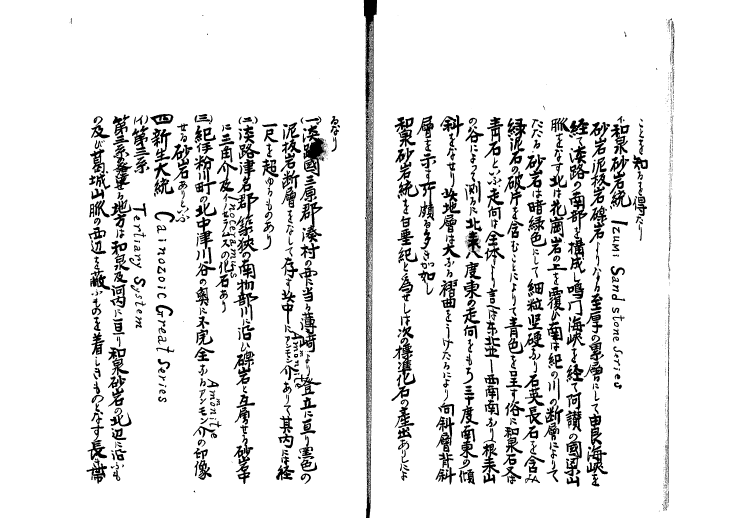 ことを知るを得たり
ハ.和泉砂岩統 Izumi Sandstone Series
砂岩泥板岩礫岩よりなる至厚の累層にして由良海峡を
経て淡路の南部を構成し鳴門海峡を経て阿讃の国界山
脈をなす北は花崗岩の上を覆ひ南は紀の川の断層によりて
たたる砂岩は暗緑色にして細粒堅硬なり石英長石を含み
緑泥石の破片を含むことによりて青色を呈す俗に和泉石又は
青石といふ走向は全体として言へば东北北—西南南なり根来山
の谷によつて測るに北八度東の走向をもち三十度南東の傾
斜をなせり此地層は大なる褶曲をうけたるにより向斜層背斜
層を示す所頗る多きが如し
和泉砂岩統を白堊紀と為せしは次の標準化石の産出ありしによ
るなり
(一)淡路國三原郡湊村の西に当る薄崎より登立に亘り黒色の
泥板岩断層をなして存す此中にアンモン介 Ammonite ありて其内には径
一尺を超ゆるものあり
(二)淡路津名郡築狭の南物部川に沿ひ礫岩と互層せる砂岩中
に三角介及イノセラムス Inoceramus の化石あり
(三)紀伊粉川町の北中津川谷の奥に不完全なるアンモン介 Ammonite の印像
せる砂岩ありといふ
四 新生大統 Cainozoic Great Series
(イ)第三系 Tertiary System
第三系発達の地方は和泉及河内に亘り和泉砂岩の北辺に沿ふも
の及び葛城山脈の西辺を蔽ふものを著しきものとなす長さ帯